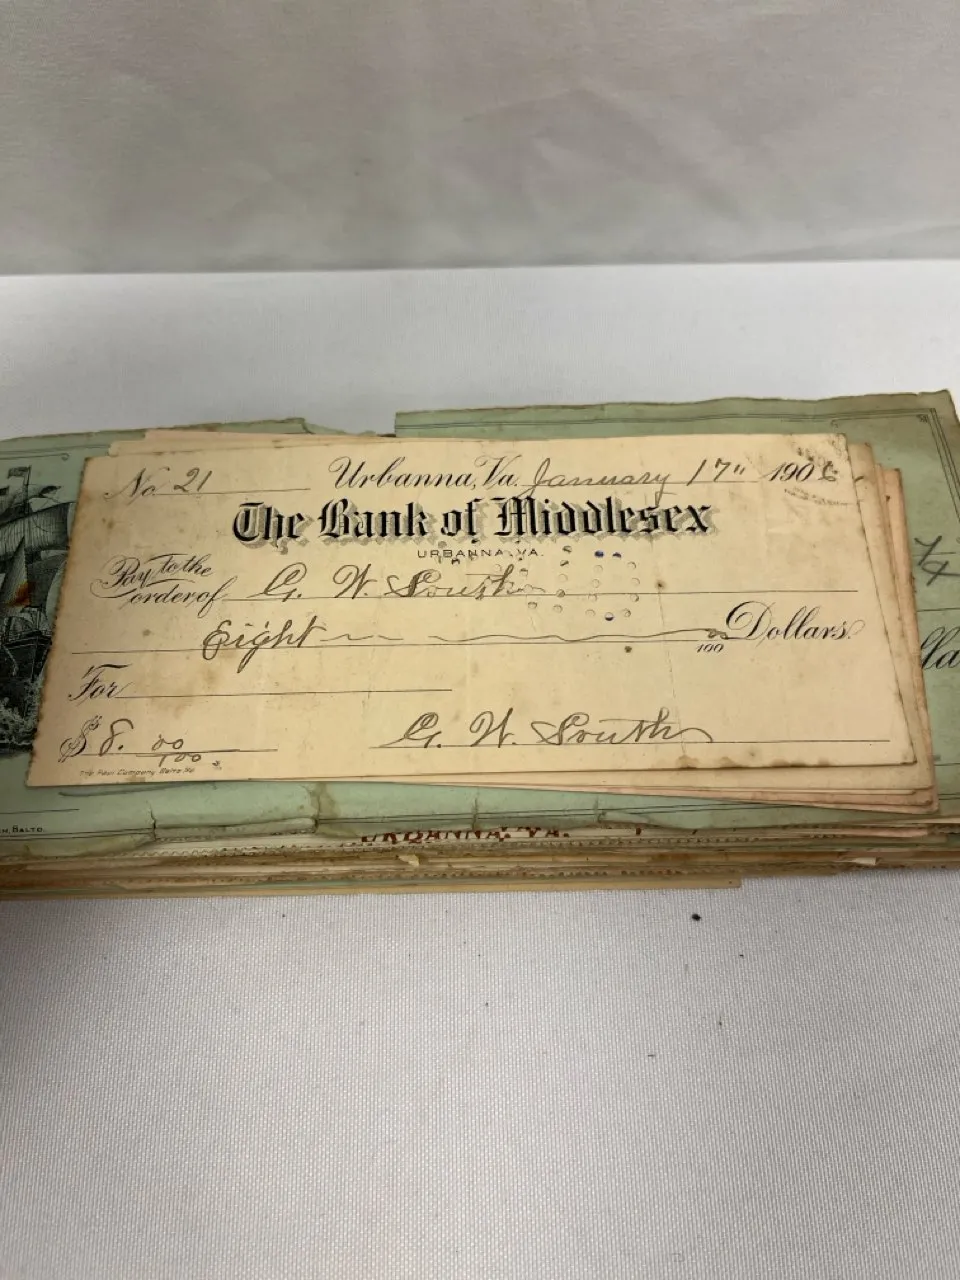 No. 21 Urbanna, Va. January 17" 1906
The Bank of Middlesex
URBANNA, VA.
Pay to the
order of G. W. South
Eight 00/100 Dollars
For
$ 8. 00/100 G. W. South
Company Balto Md
H, BALTO.
URBANNA, VA.